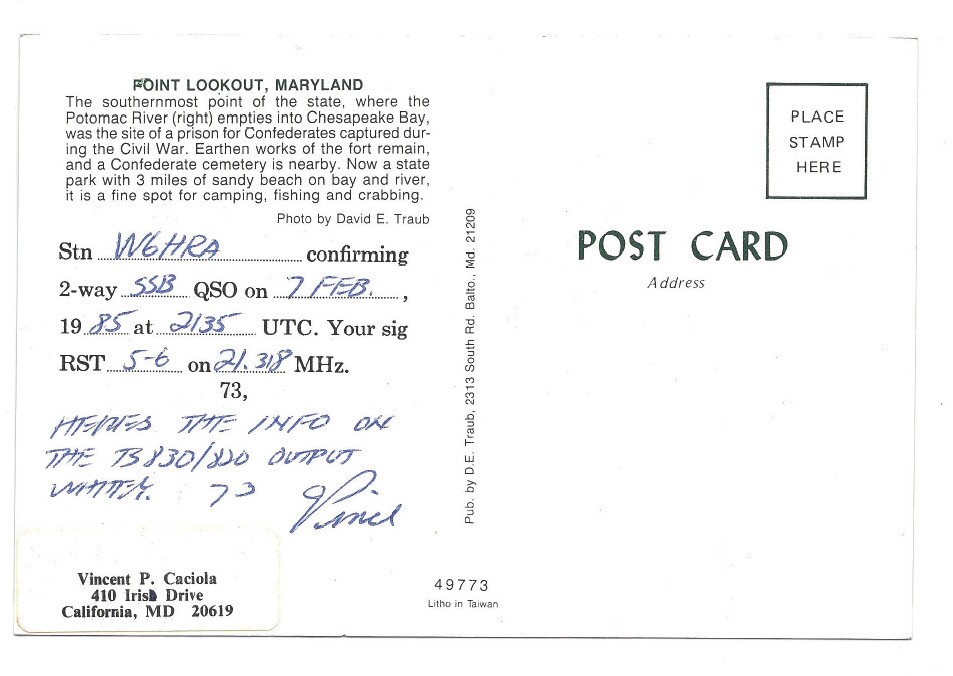 POINT LOOKOUT, MARYLAND
The southernmost point of the state, where the
Potomac River (right) empties into Chesapeake Bay,
was the site of a prison for Confederates captured dur-
ing the Civil War. Earthen works of the fort remain,
and a Confederate cemetery is nearby. Now a state
park with 3 miles of sandy beach on bay and river,
it is a fine spot for camping, fishing and crabbing.
Photo by David E. Traub
Stn W6HRA confirming
2-way SSB QSO on 7 FEB. ,
19 85 at 2135 UTC. Your sig
RST 5-6 on 21.318 MHz.
73,
HERES THE INFO ON
THE TS830/820 OUTPUT
73
Vince
Vincent P. Caciola
410 Iris Drive
California, MD 20619
Pub. by D.E. Traub, 2313 South Rd. Balto., Md. 21209
49773
Litho in Taiwan
PLACE
STAMP
HERE
POST CARD
Address